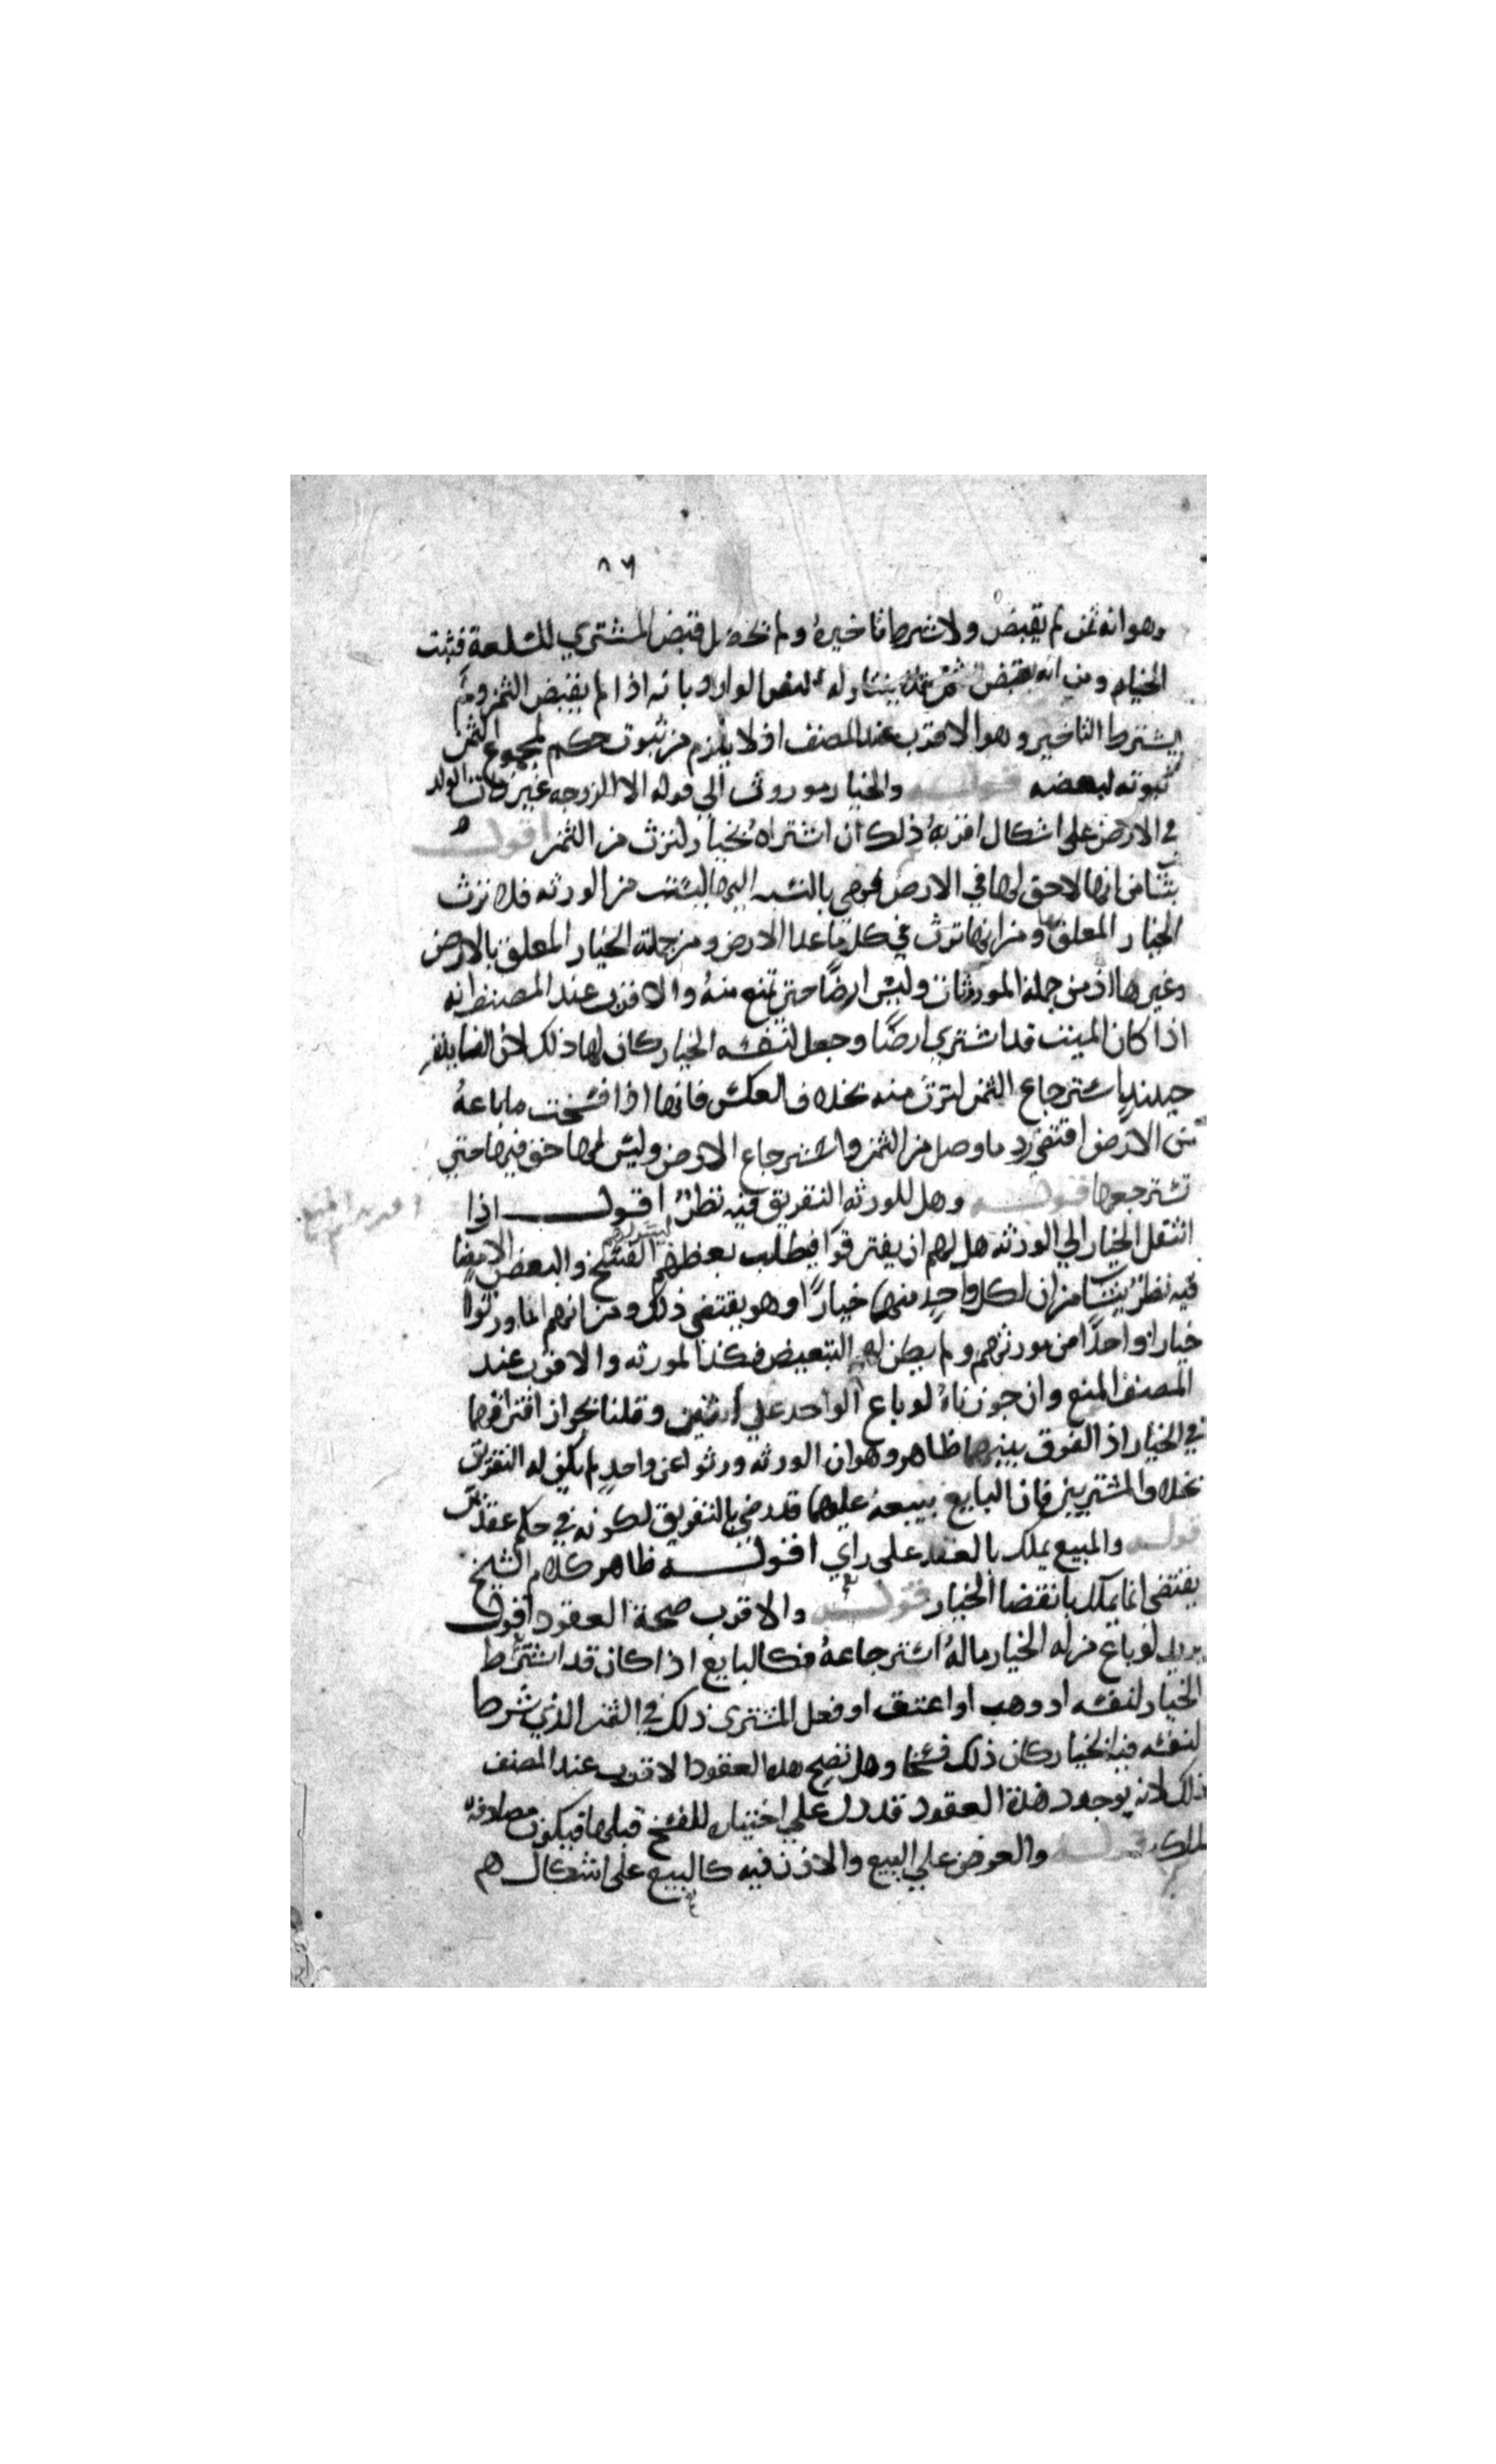 ٨٦
وهو انه ثمن لم يقبض ولا شرط تاخيره ولم يحصل قبض المشتري للسلعة فثبت
الخيار ومن انه بقبض يتناوله النص الوارد بانه اذا لم يقبض الثمن ولم
يشترط التاخير وهو الاقرب عند المصنف اذ لا يلزم من ثبوت حكم لمجموع الثمن
ثبوته لبعضه قوله والخيار موروث الي قوله الا الزوجه غير ذات الولد
في الارض علي اشكال اقربه ذلك ان اشتراه بخيار لترث من الثمن اقول
ينشا من انها لا حق لها في الارض فهي بالنسبه اليها ليست من الورثه فلا ترث
الخيار المعلق بها ومن انها ترث في كل ما عدا الارض ومن جملته الخيار المعلق بالارض
وغيرها اذ من جملة الموروثات وليس ارضًا حتي تمنع منه والاقرب عند المصنف انه
اذا كان الميت قد اشتري ارضًا وجعل لنفسه الخيار كان لها ذلك لان
حينئذ باسترجاع الثمن لترث منه بخلاف العكس فانها اذا فسخت ما باعه
من الارض اقتضي رد ما وصل من الثمن واسترجاع الارض وليس لها حق فيها حتي
تسترجعها قوله وهل للورثه التفريق فيه نظر اقول اذا
انتقل الخيار الي الورثه هل لهم ان يفترقوا فيطلب بعضهم الفسخ والبعض الامضا
فيه نظر ينشا من ان لكل واحد منهما خيارًا وهو يقتضي ذلك ومن انهم انما ورثوا
خيارا واحدًا من مورثهم ولم يكن له التبعيض فكذا لمورثه والاقرب عند
المصنف المنع وان جوزناه لو باع الواحد علي اثنين وقلنا بجواز افتراقهما
في الخيار اذ الفرق بينهما ظاهر وهو ان الورثه ورثوا عن واحد لم يكن له التفريق
بخلاف المشتريين فان البايع ببيعه عليهما قد رضي بالتفريق لكونه في حكم عقدين
قوله والمبيع يملك بالعقد علي راي اقول ظاهر كلام الشيخ
يقتضي انما يملك بانقضا الخيار قوله والاقرب صحة العقود اقول
يريد لو باع من له الخيار ماله استرجاعه فكالبايع اذا كان قد اشترط
الخيار لنفسه او وهب او اعتق او فعل المشتري ذلك في الثمن الذي شرط
لنفسه فيه الخيار كان ذلك فسخا وهل تصح هذه العقود الاقرب عند المصنف
ذلك لانه بوجود هذه العقود قد دل علي اختياره للفسخ قبلها فيكون مصادفه
للملك قوله والعرض علي البيع والاذن فيه كالبيع علي اشكال هم